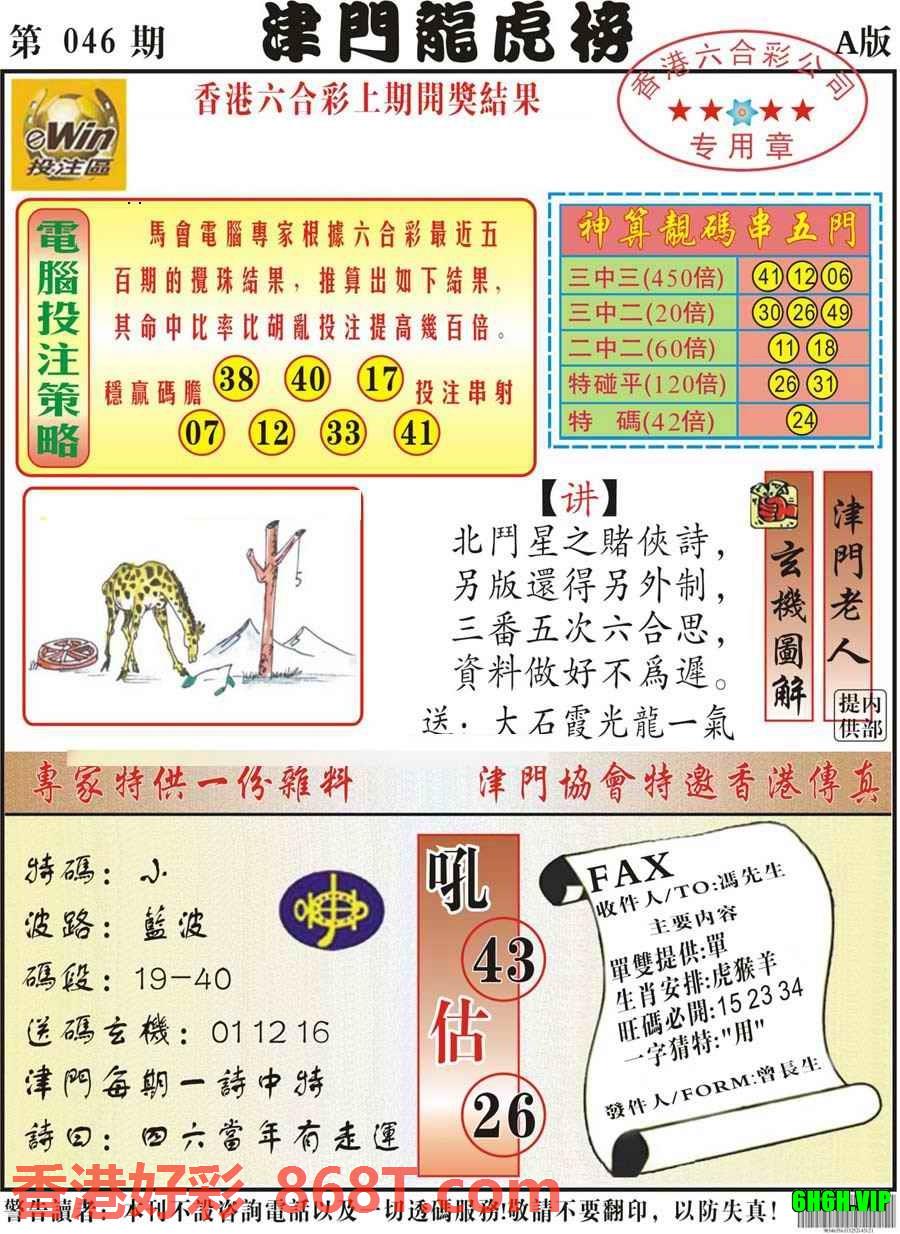 第 046 期
津門龍虎榜
A版
香港六合彩上期開獎結果
香港六合彩公司
专用章
eWin
投注區
電腦投注策略
馬會電腦專家根據六合彩最近五
百期的攪珠結果，推算出如下結果，
其命中比率比胡亂投注提高幾百倍。
穩贏碼膽 38 40 17 投注串射
07 12 33 41
神算靚碼串五門
三中三(450倍) 41 12 06
三中二(20倍) 30 26 49
二中二(60倍) 11 18
特碰平(120倍) 26 31
特 碼(42倍) 24
5
【讲】
北鬥星之賭俠詩，
另版還得另外制，
三番五次六合思，
資料做好不爲遲。
送：大石霞光龍一氣
玄機圖解
津門老人
内部提供
專家特供一份雜料
津門協會特邀香港傳真
特碼：小
波路：藍波
碼段：19-40
送碼玄機：01 12 16
津門每期一詩中特
詩曰：四六當年有走運
吼
43
估
26
FAX
收件人/TO:馮先生
主要内容
單雙提供:單
生肖安排:虎猴羊
旺碼必開:15 23 34
一字猜特:"用"
發件人/FORM:曾長生
香港好彩 868T.com
警告讀者：本刊不設咨詢電話以及一切透碼服務!敬請不要翻印，以防失真!
6H6H.VIP